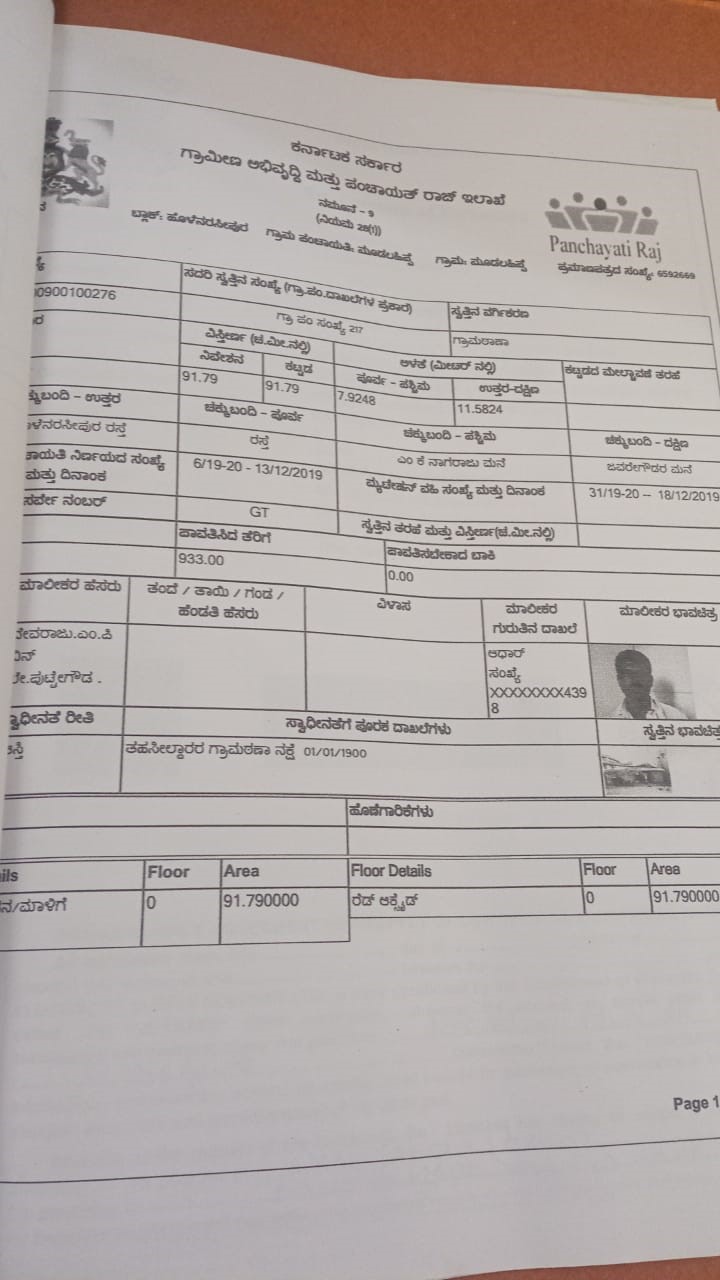 ಕರ್ನಾಟಕ ಸರ್ಕಾರ
ಗ್ರಾಮೀಣ ಅಭಿವೃದ್ಧಿ ಮತ್ತು ಪಂಚಾಯತ್ ರಾಜ್ ಇಲಾಖೆ
ನಮೂನೆ - 9
(ನಿಯಮ 28(1))
Panchayati Raj
ಬ್ಲಾಕ್: ಹೊಳೆನರಸೀಪುರ ಗ್ರಾಮ ಪಂಚಾಯತಿ: ಮೂಡಲಹಿಪ್ಪೆ ಗ್ರಾಮ: ಮೂಡಲಹಿಪ್ಪೆ ಪ್ರಮಾಣಪತ್ರದ ಸಂಖ್ಯೆ: 6592669
ಸದರಿ ಸ್ವತ್ತಿನ ಸಂಖ್ಯೆ (ಗ್ರಾ.ಪಂ.ದಾಖಲೆಗಳ ಪ್ರಕಾರ) ಸ್ವತ್ತಿನ ವರ್ಗೀಕರಣ
0900100276 ಗ್ರಾ ಪಂ ಸಂಖ್ಯೆ 217 ಗ್ರಾಮಠಾಣಾ
ವಿಸ್ತೀರ್ಣ (ಚ.ಮೀ.ನಲ್ಲಿ) ಅಳತೆ (ಮೀಟರ್ ನಲ್ಲಿ) ಕಟ್ಟಡದ ಮೇಲ್ಛಾವಣಿ ತರಹೆ
ನಿವೇಶನ ಕಟ್ಟಡ ಪೂರ್ವ - ಪಶ್ಚಿಮ ಉತ್ತರ-ದಕ್ಷಿಣ
91.79 91.79 7.9248 11.5824
ಕ್ಕುಬಂದಿ - ಉತ್ತರ ಚಕ್ಕುಬಂದಿ - ಪೂರ್ವ ಚಕ್ಕುಬಂದಿ - ಪಶ್ಚಿಮ ಚಕ್ಕುಬಂದಿ - ದಕ್ಷಿಣ
ಳೆನರಸೀಪುರ ರಸ್ತೆ ರಸ್ತೆ ಎಂ ಕೆ ನಾಗರಾಜು ಮನೆ ಜವರೇಗೌಡರ ಮನೆ
ಾಯತಿ ನಿರ್ಣಯದ ಸಂಖ್ಯೆ
ಮತ್ತು ದಿನಾಂಕ 6/19-20 - 13/12/2019 ಮ್ಯುಟೇಶನ್ ವಹಿ ಸಂಖ್ಯೆ ಮತ್ತು ದಿನಾಂಕ 31/19-20 -- 18/12/2019
ಸರ್ವೇ ನಂಬರ್ GT ಸ್ವತ್ತಿನ ತರಹೆ ಮತ್ತು ವಿಸ್ತೀರ್ಣ(ಚ.ಮೀ.ನಲ್ಲಿ)
ಪಾವತಿಸಿದ ತೆರಿಗೆ ಪಾವತಿಸಬೇಕಾದ ಬಾಕಿ
933.00 0.00
ಮಾಲೀಕರ ಹೆಸರು ತಂದೆ / ತಾಯಿ / ಗಂಡ /
ಹೆಂಡತಿ ಹೆಸರು ವಿಳಾಸ ಮಾಲೀಕರ
ಗುರುತಿನ ದಾಖಲೆ ಮಾಲೀಕರ ಭಾವಚಿತ್ರ
ದೇವರಾಜು.ಎಂ.ಪಿ
ಬಿನ್
ಪುಟ್ಟೇಗೌಡ .
ಆಧಾರ್
ಸಂಖ್ಯೆ
XXXXXXXX439
8
ಸ್ವಾಧೀನತೆ ರೀತಿ ಸ್ವಾಧೀನತೆಗೆ ಪೂರಕ ದಾಖಲೆಗಳು ಸ್ವತ್ತಿನ ಭಾವಚಿತ್ರ
ತಹಸೀಲ್ದಾರರ ಗ್ರಾಮಠಾಣಾ ನಕ್ಷೆ 01/01/1900
ಹೊಣೆಗಾರಿಕೆಗಳು
ils Floor Area Floor Details Floor Area
ನ/ಮಾಳಿಗೆ 0 91.790000 ರೆಡ್ ಆಕ್ಸೈಡ್ 0 91.790000
Page 1